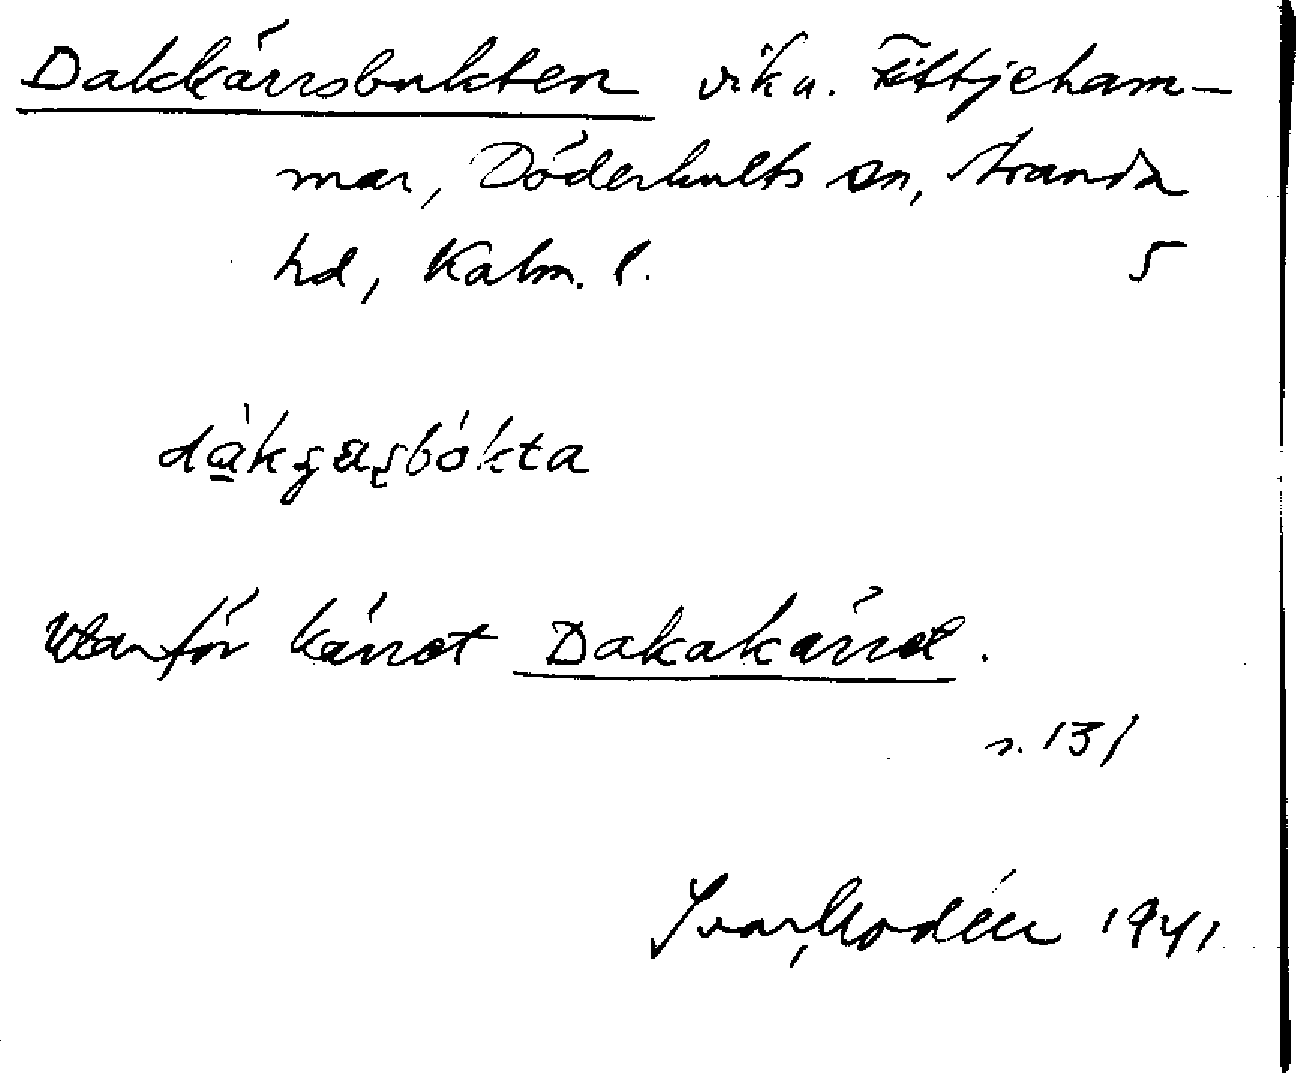 Dakkärrsbukten vik u. Fittjeham-
mar, Döderhults sn, Stranda
hd, Kalm. l. 5
Utanför kärret Dakakärret.
s. 131
Ivar Modéer 1941